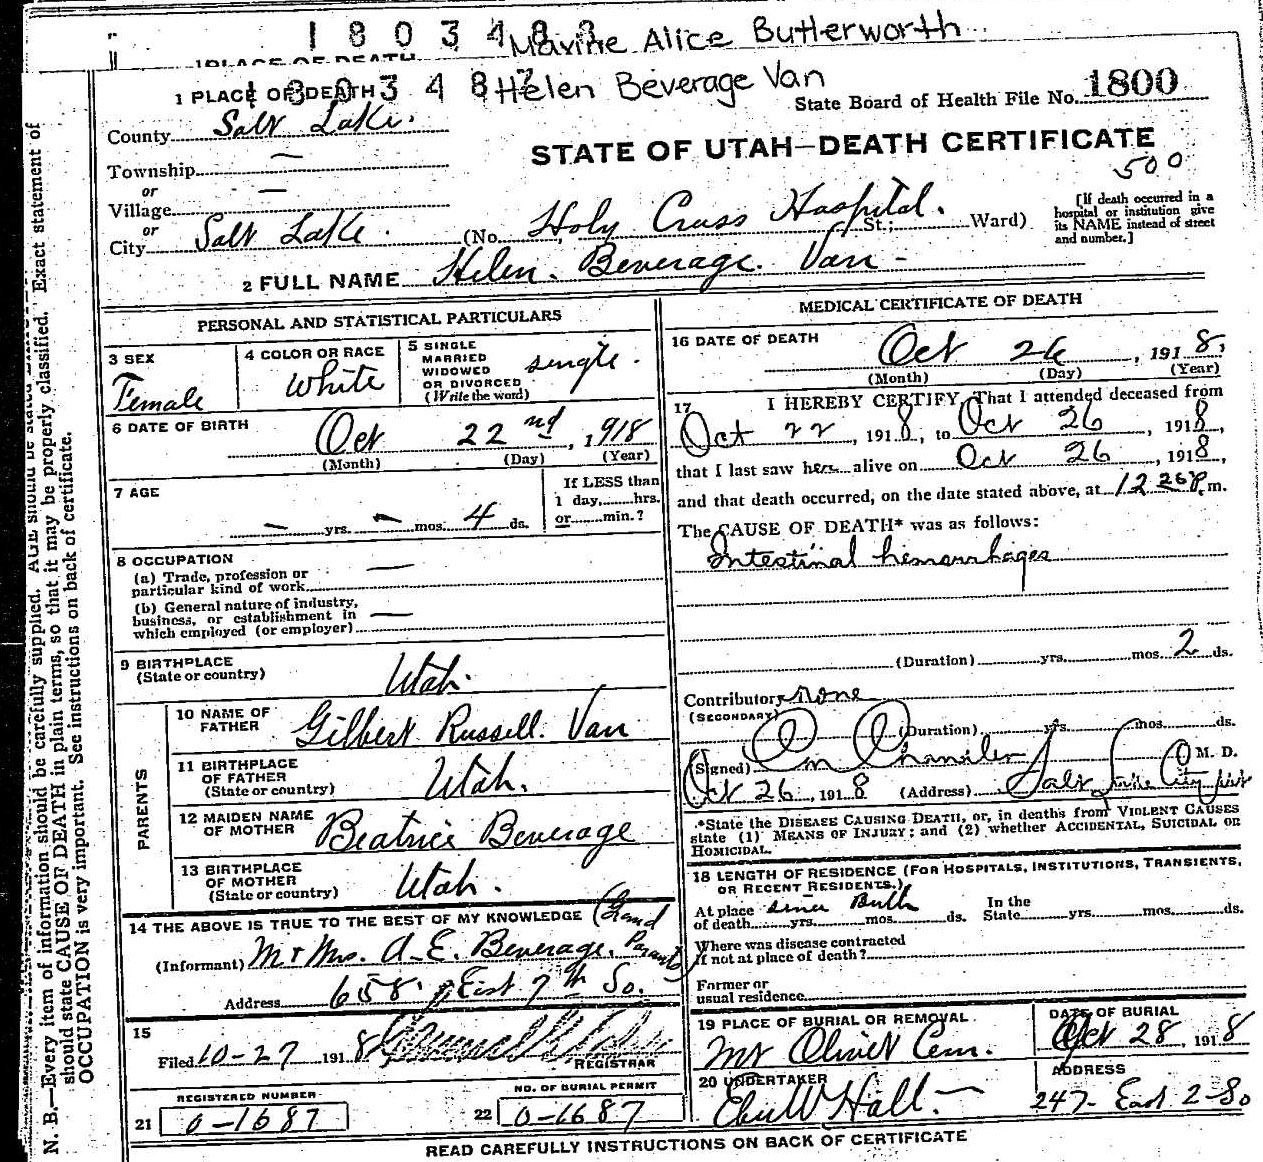 1 8 0 3 4 8 8 Maxine Alice Butterworth
1 PLACE OF DEATH
1 8 0 3 4 8 7 Helen Beverage Van
1 PLACE OF DEATH
State Board of Health File No. 1800
County Salt Lake.
STATE OF UTAH—DEATH CERTIFICATE
500
Township —
or
Village —
or
City Salt Lake. (No. Holy Cross Hospital. St.; Ward)
[If death occurred in a
hospital or institution give
its NAME instead of street
and number.]
2 FULL NAME Helen. Beverage. Van -
PERSONAL AND STATISTICAL PARTICULARS
3 SEX
Female
4 COLOR OR RACE
White
5 SINGLE
MARRIED
WIDOWED
OR DIVORCED
(Write the word)
single.
6 DATE OF BIRTH
Oct 22nd, 1918
(Month) (Day) (Year)
7 AGE
— yrs. — mos. 4 ds.
If LESS than
1 day, hrs.
or min.?
8 OCCUPATION
(a) Trade, profession or
particular kind of work —
(b) General nature of industry,
business, or establishment in
which employed (or employer) —
9 BIRTHPLACE
(State or country) Utah.
PARENTS
10 NAME OF
FATHER Gilbert Russell. Van
11 BIRTHPLACE
OF FATHER
(State or country) Utah.
12 MAIDEN NAME
OF MOTHER Beatrice Beverage
13 BIRTHPLACE
OF MOTHER
(State or country) Utah.
14 THE ABOVE IS TRUE TO THE BEST OF MY KNOWLEDGE (Grand
Parents)
(Informant) Mr & Mrs. A. E. Beverage.
Address 658. East 7th So.
15
Filed 10-27 1918
REGISTRAR
REGISTERED NUMBER
21 0-1687
NO. OF BURIAL PERMIT
22 0-1687
MEDICAL CERTIFICATE OF DEATH
16 DATE OF DEATH
Oct 26, 1918,
(Month) (Day) (Year)
17 I HEREBY CERTIFY, That I attended deceased from
Oct 22, 1918, to Oct 26, 1918,
that I last saw her alive on Oct 26, 1918,
and that death occurred, on the date stated above, at 12 25 P. m.
The CAUSE OF DEATH* was as follows:
Intestinal hemorrhages
(Duration) yrs. mos. 2 ds.
Contributory none
(SECONDARY)
(Duration) yrs. mos. ds.
(Signed) Chandler M. D.
Oct 26, 1918 (Address) Salt Lake City
*State the DISEASE CAUSING DEATH, or, in deaths from VIOLENT CAUSES
state (1) MEANS OF INJURY; and (2) whether ACCIDENTAL, SUICIDAL OR
HOMICIDAL.
18 LENGTH OF RESIDENCE (FOR HOSPITALS, INSTITUTIONS, TRANSIENTS,
OR RECENT RESIDENTS.)
At place since Birth In the
of death yrs. mos. ds. State yrs. mos. ds.
Where was disease contracted
if not at place of death?
Former or
usual residence
19 PLACE OF BURIAL OR REMOVAL
Mt Olivet Cem.
DATE OF BURIAL
Oct 28, 1918
20 UNDERTAKER
Eber W Hall. —
ADDRESS
247- East 2-So
READ CAREFULLY INSTRUCTIONS ON BACK OF CERTIFICATE
N. B.—Every item of information should be carefully supplied. AGE should be stated EXACTLY.
should state CAUSE OF DEATH in plain terms, so that it may be properly classified. Exact statement of
OCCUPATION is very important. See instructions on back of certificate.